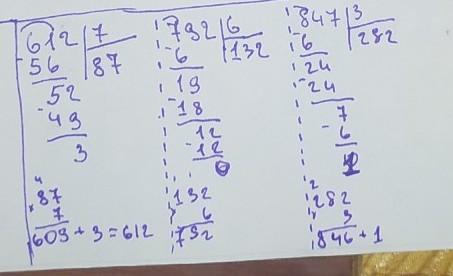 612 7
56 87
52
- 49
3
4
87
x 7
609 + 3 = 612
792 6
- 6 132
19
- 18
12
- 12
0
1
132
x 6
792
847 3
6 282
24
- 24
7
- 6
1
2
282
x 3
846 + 1